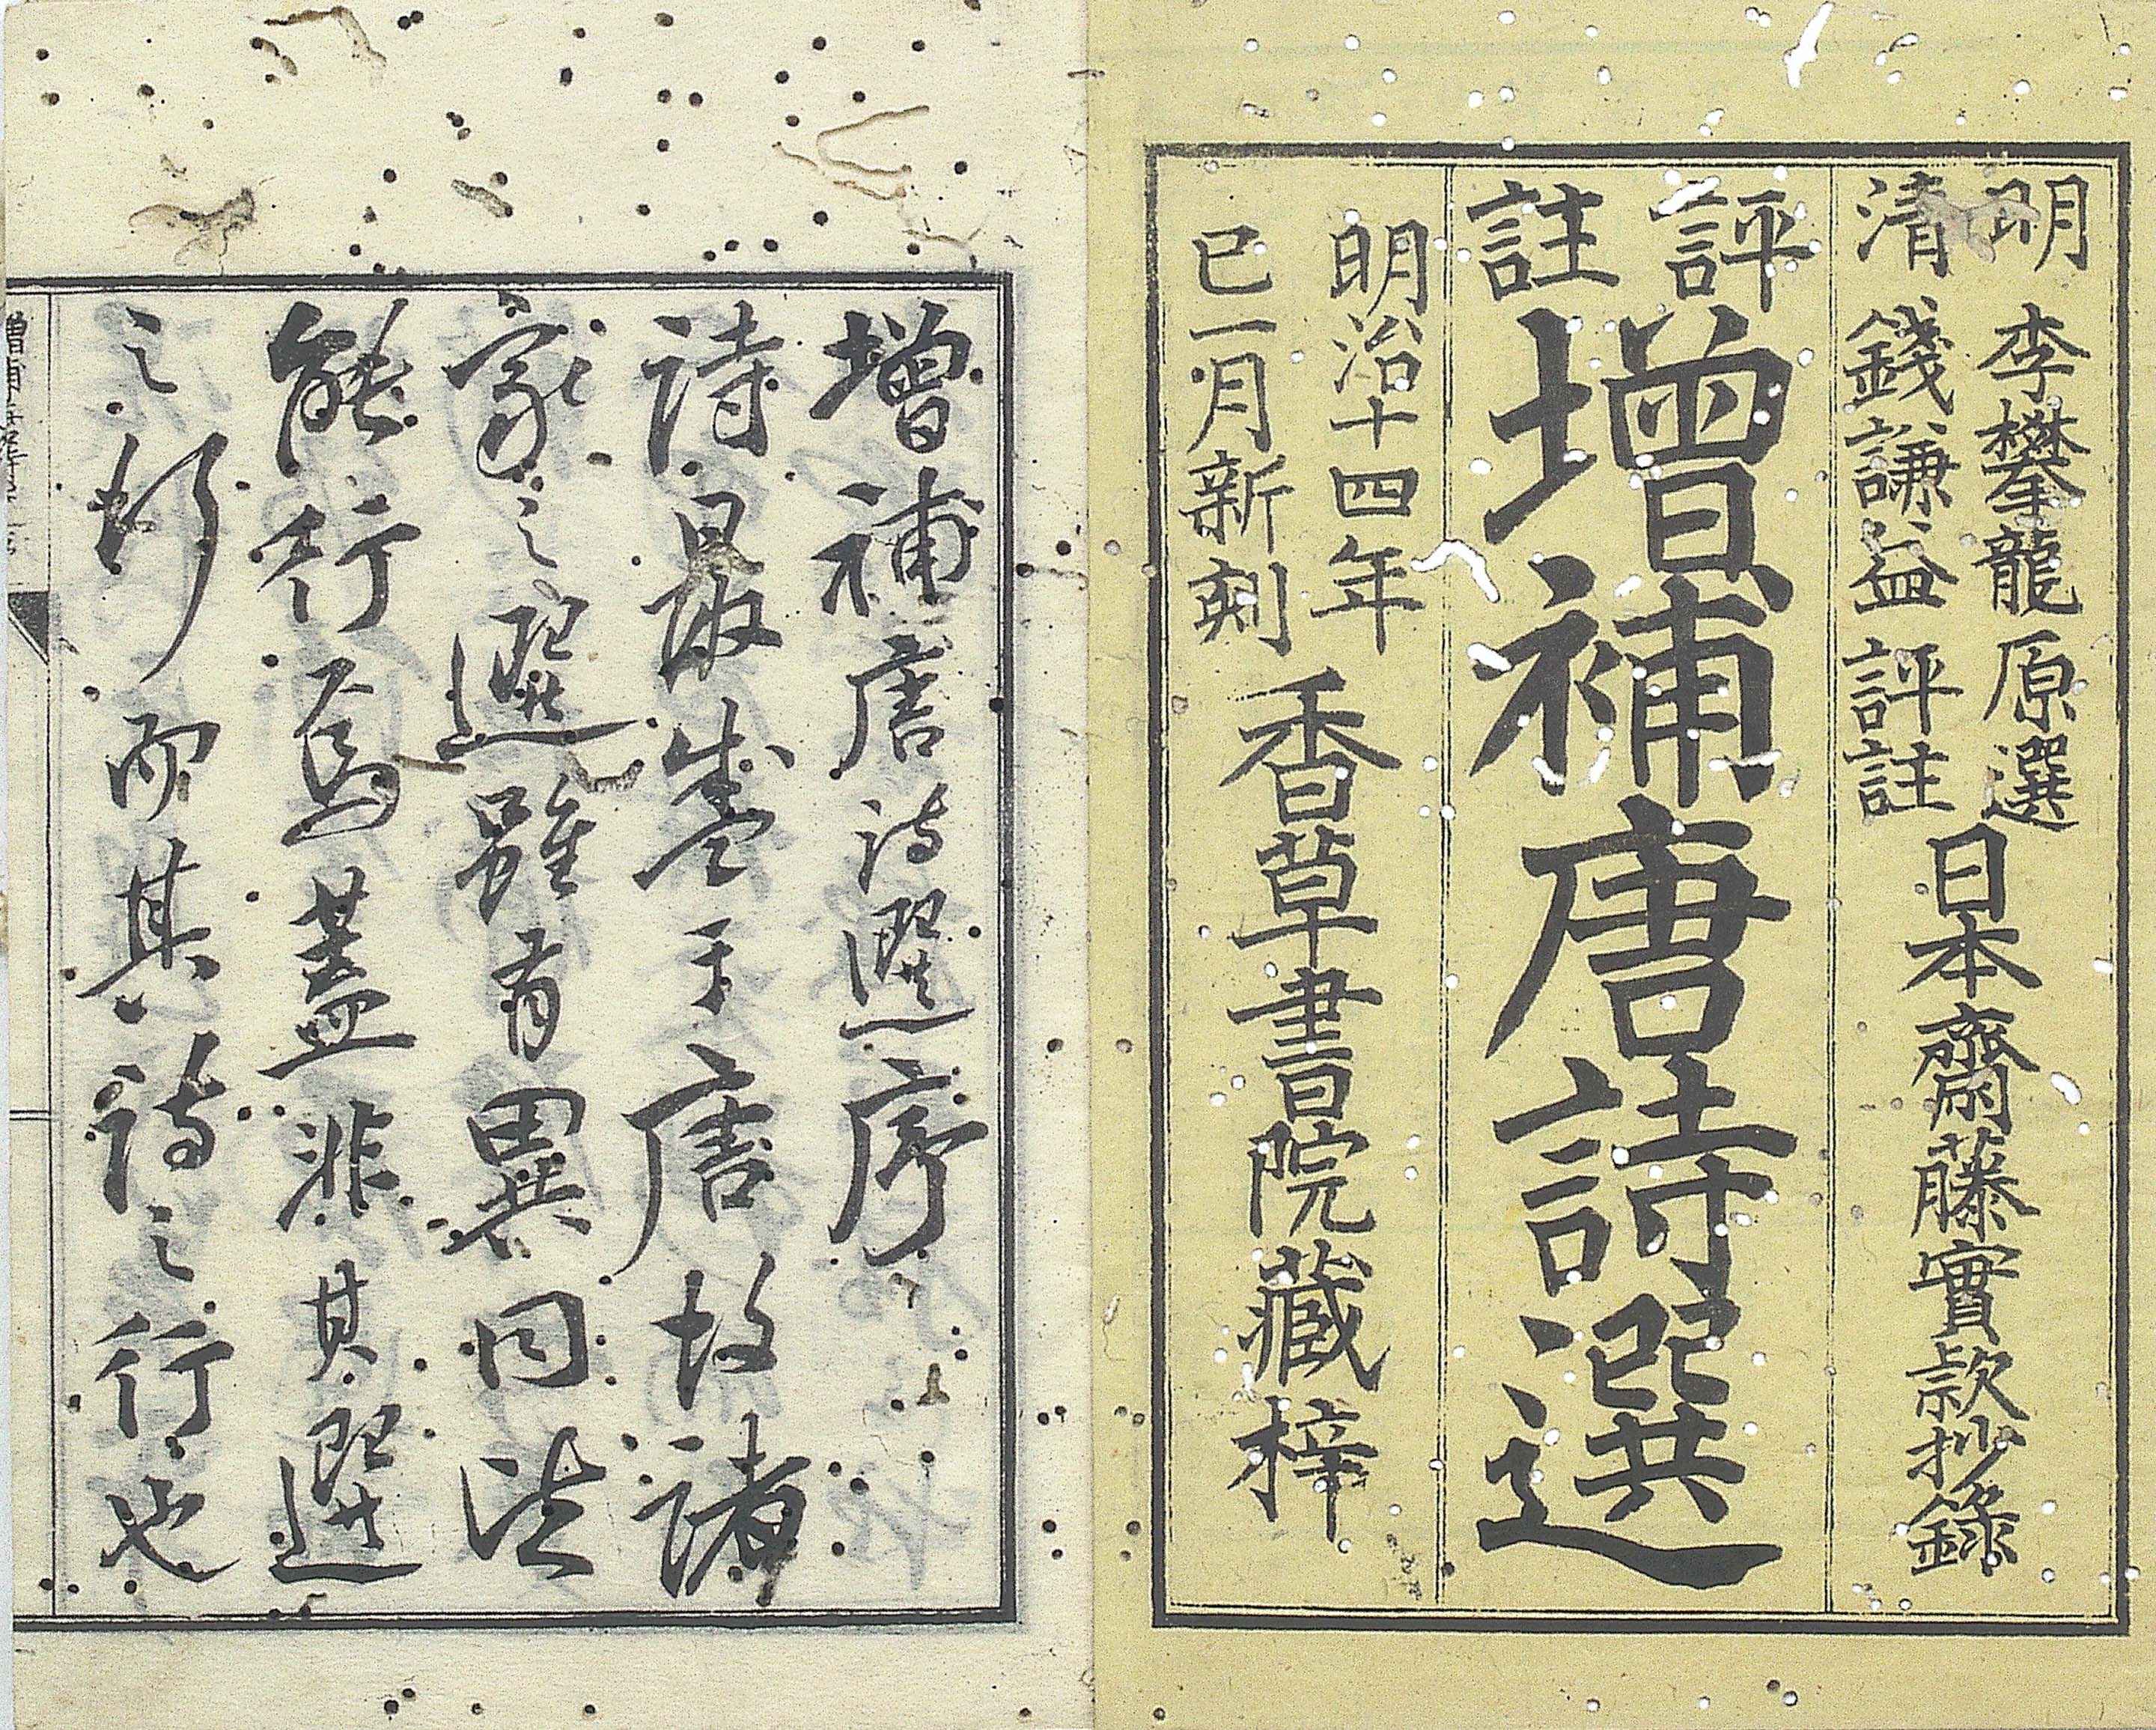 明 李攀龍原選
清 錢謙益評註
日本齋藤實款抄錄
評註
增補唐詩選
明治十四年
巳一月新刻
香草書院藏梓
增補唐詩選序
詩最盛于唐故諸
家之選雖有異同
能行焉蓋非其選
之行而其詩之行也